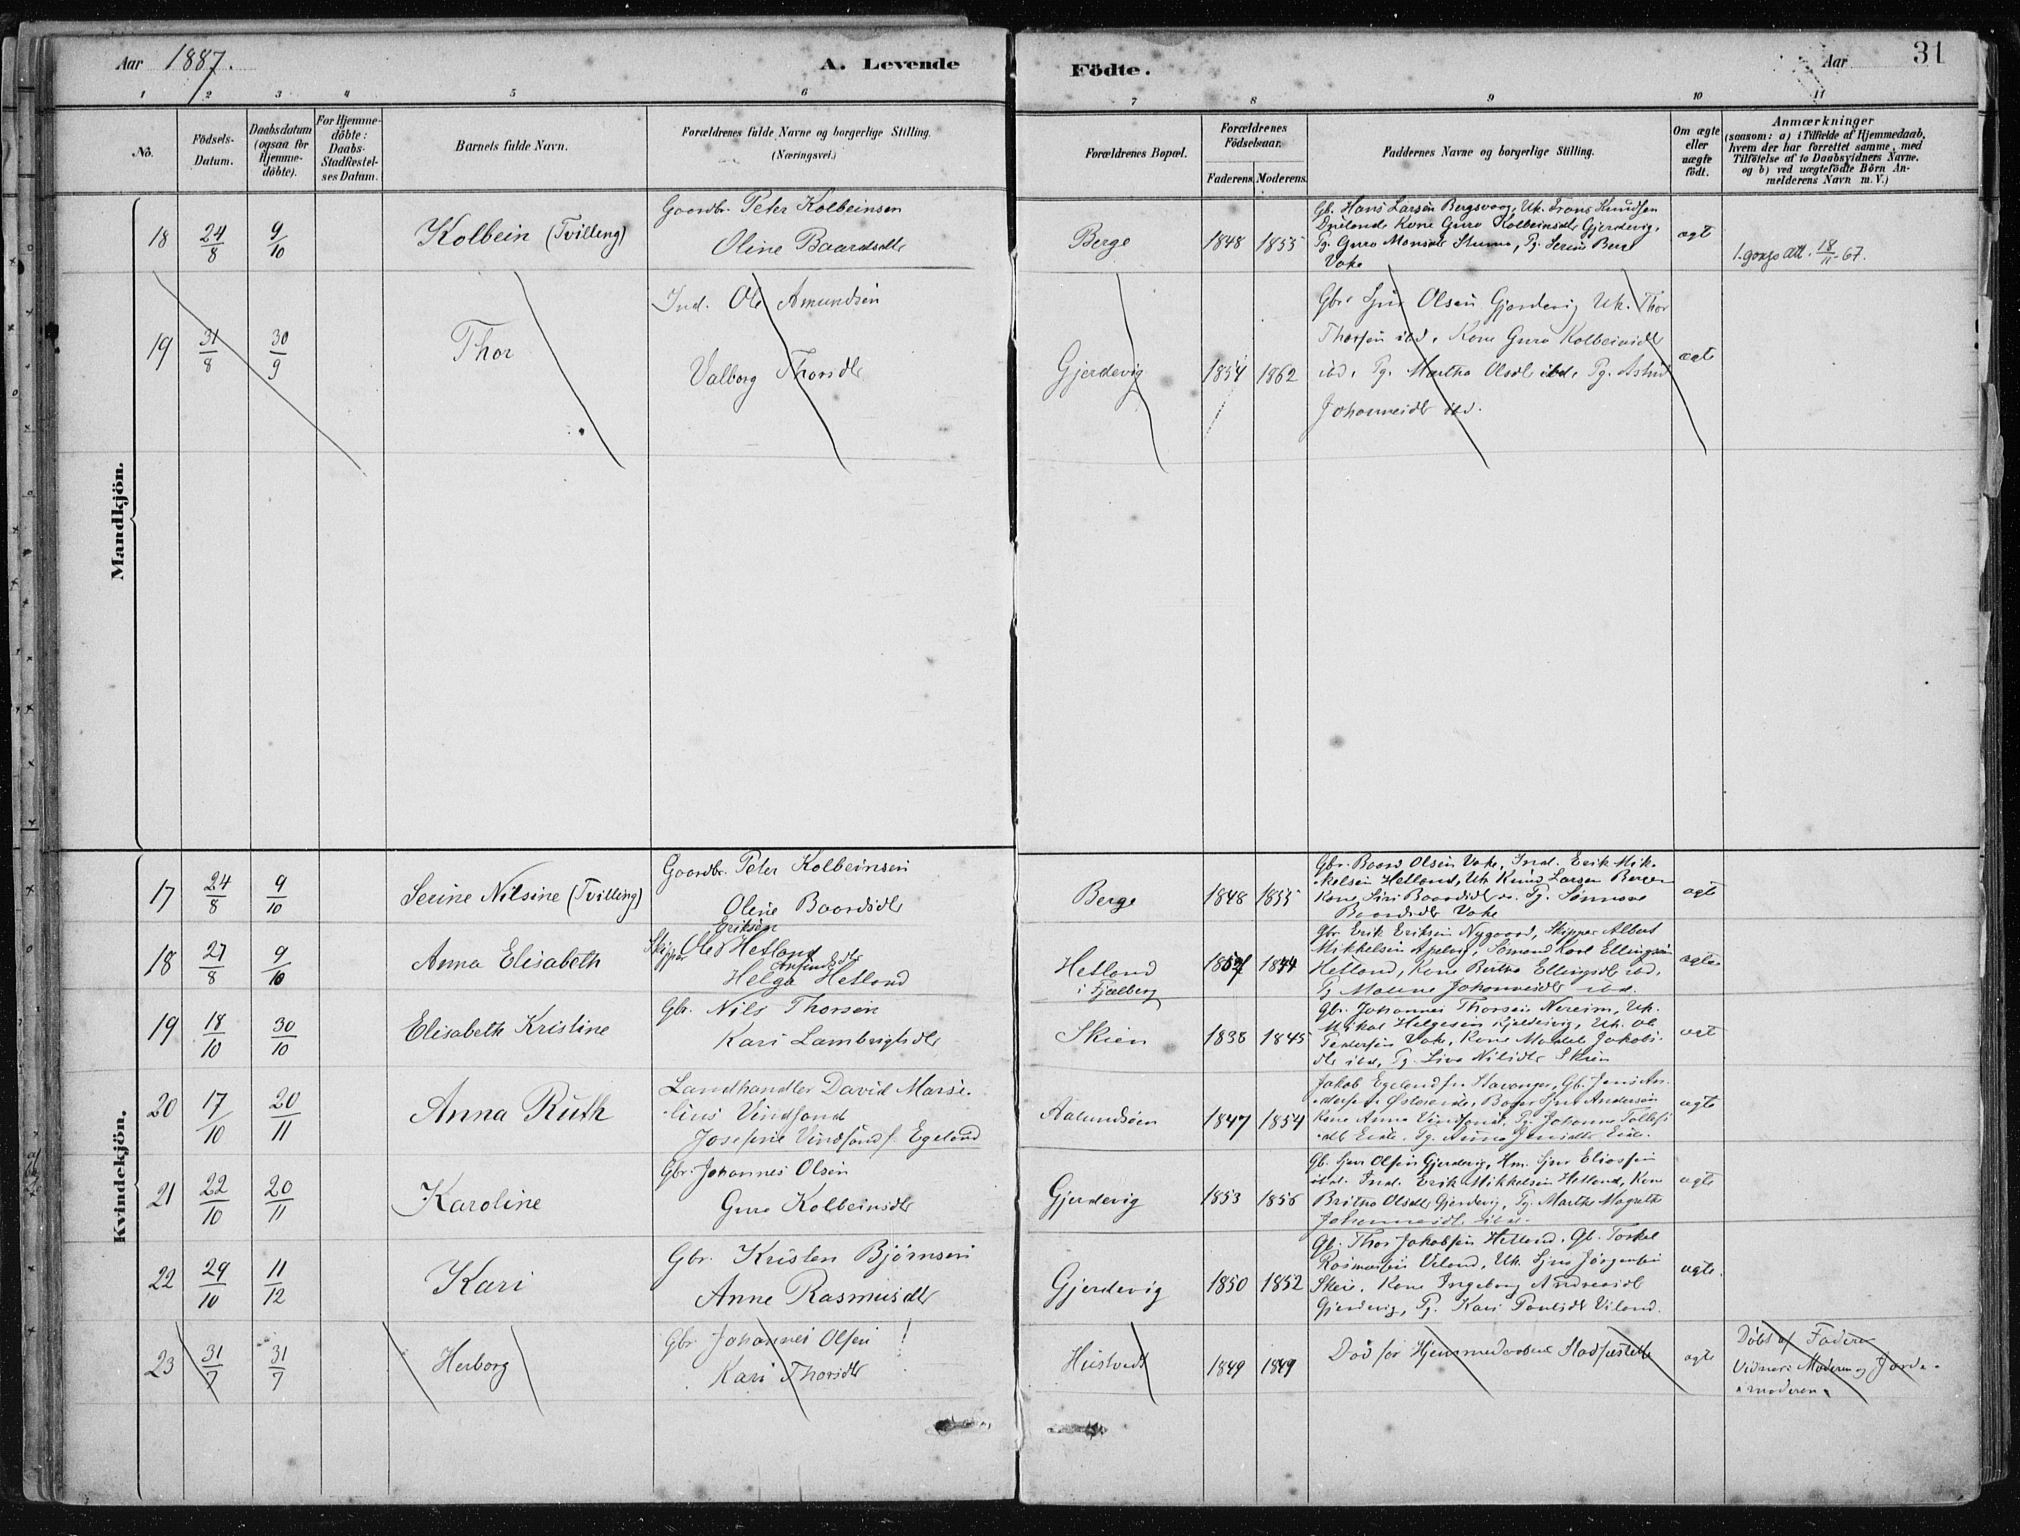 Aar 1887.
A. Levende
Födte.
Aar
31
1 2 3 4 5 6 7 8 9 10 11
No.
Födsels-
Datum.
Daabsdatum
(ogsaa for
Hjemme-
döbte).
For Hjemme-
döbte:
Daabs-
Stadfæstel-
ses Datum.
Barnets fulde Navn.
Forældrenes fulde Navne og borgerlige Stilling.
(Næringsvei.)
Forældrenes Bopæl.
Forældrenes
Födselsaar.
Faderens Moderens.
Faddernes Navne og borgerlige Stilling.
Om ægte
eller
uægte
födt.
Anmærkninger
(saasom: a) i Tilfælde af Hjemmedaab,
hvem der har forrettet samme, med
Tilföielse af to Daabsvidners Navne,
og b) ved uægtefödte Börn An-
melderens Navn m. V.)
Mandkjön.
18 24/8 9/10 Kolbein (Tvilling)
Gaardbr. Peter Kolbeinsen
Oline Baardsdtr
Berge 1848 1855
Gb. Hans Larsen Bergsvaag, Uk. Knudsen
Kone Guro Kolbeinsdtr Gjerdevig,
Pg. Guro Monsdtr Pg. Serine Berge
Vake
ægte
1. gangs att. 18/11-67.
19 31/8 30/9 Thor
Ind. Ole Amundsen
Valborg Thorsdtr
Gjerdevig 1854 1862
Gbr. Sjur Olsen Gjerdevig Uk. Thor
Thorsen ibd. Kone Guro Kolbeinsdtr
ibd. Pg. Martha Olsdtr ibd. Pg. Astrid
Johannesdtr ibd.
ægte
Kvindekjön.
17 24/8 9/10 Serine Nilsine (Tvilling)
Gaardbr. Peter Kolbeinsen
Oline Baardsdtr
Berge 1848 1855
Gbr. Baard Olsen Vake, Ind. Erik Mik-
kelsen Hetland, Uk. Knud Larsen Berge
Kone Siri Baardsdtr Pg. Sønneve
Baardsdtr Vake
ægte
18 27/8 9/10 Anna Elisabeth
Eriksen
Skipper Ole Hetland
Helga Hetland
Hetland
i Fjelberg
1844
Gbr Erik Eriksen Nygaard, Skipper Albert
Mikkelsen Sømand Karl Ellingsen
Hetland, Kone Bertha Ellingsdtr ibd.
Pg Malene Johannesdtr ibd.
ægte
19 18/10 30/10 Elisabeth Kristine
Gbr. Nils Thorsen
Kari Lambrigtsdtr
Skien 1838 1845
Gbr. Johannes Thorsen Nereim, Uk.
Mikal Helgesen Uk. Ole
Pedersen Vake, Kone Jakobs-
dtr ibd, Pg. Nilsdtr Skien
ægte
20 17/10 20/11 Anna Ruth
Landhandler David Marse-
lius Vindsand
Josefine Vindsand f. Egeland
Aalundsøen 1847 1854
Jakob Egeland fr. Stavanger, Gb. Jens An-
Sjur Andersen
Kone Anna Vindsand, Pg. Johanna Tollefs-
dtr Eide. Pg. Anna Jensdtr Eide.
ægte
21 22/10 20/11 Karoline
Gbr. Johannes Olsen
Guro Kolbeinsdtr
Gjerdevig 1853 1856
Gb. Sjur Olsen Gjerdevig, Hm. Sjur Eliassen
ibd. Ind. Erik Mikkelsen Hetland, Kone
Britha Olsdtr Gjerdevig, Pg. Martha Magretha
Johannesdtr ibd.
ægte
22 29/10 11/12 Kari
Gbr. Kristen Bjørnsen
Anne Rasmusdtr
Gjerdevig 1850 1852
Gb. Thor Jakobsen Hetland. Gb. Torkel
Rasmussen Viland, Uk. Sjur Jørgensen
Skeie. Kone Ingeborg Andreasdtr
Gjerdevig, Pg. Kari Poulsdtr Viland.
ægte
23 31/7 31/7 Herborg
Gbr Johannes Olsen !
Kari Thorsdtr
Hustvedt 1849 1849
Død før Hjemmedaabens Stadfæstelse
ægte
Døbt af Faderen
Vidner: Moderen og Jorde-
moderen.